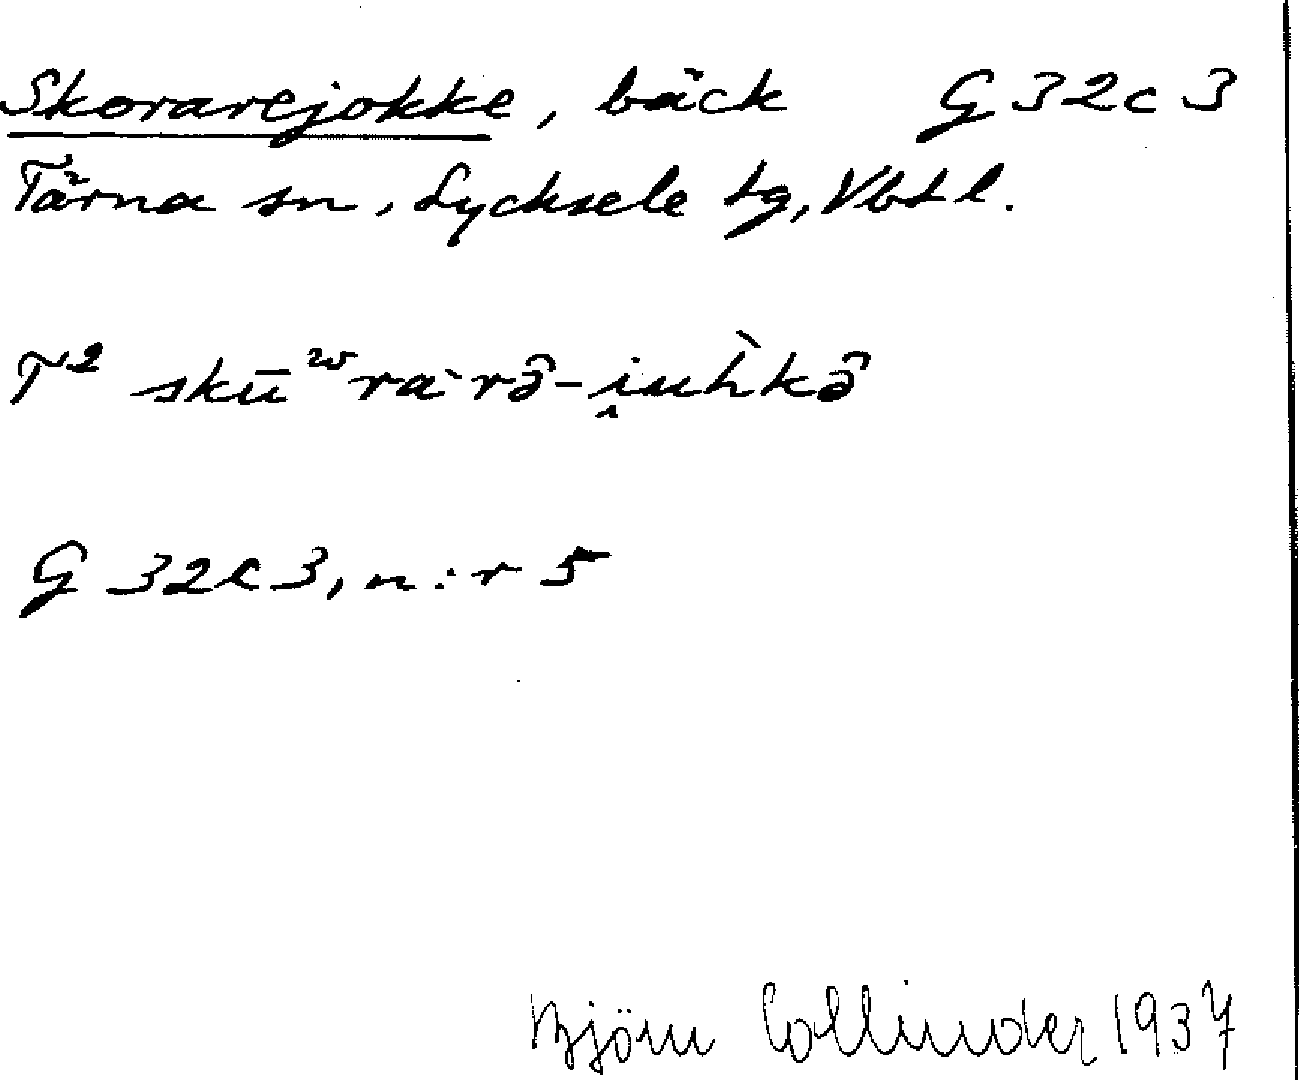 Skorarejokke, bäck G 32c3
Tärna sn, Lycksele tg, Vbtl.
T² skūʷràrə̂-i̯uh̀kə̂
G 32c3, n:r 5
Björn Collinder 1937